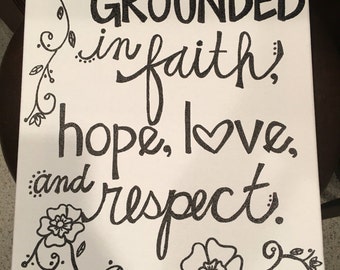 GROUNDED
in faith,
hope, love,
and respect.